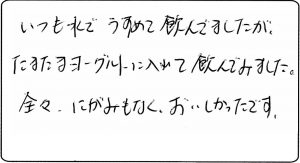 いつも水で うすめて飲んでましたが、
たまたまヨーグルトに入れて飲んでみました。
全々、にがみもなく、おいしかったです。